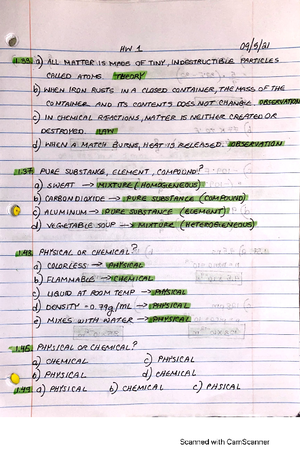 HW 1 09/5/21
1.33. a) ALL MATTER IS MADE OF TINY, INDESTRUCTIBLE PARTICLES
CALLED ATOMS. THEORY
b) WHEN IRON RUSTS IN A CLOSED CONTAINER, THE MASS OF THE
CONTAINER AND ITS CONTENTS DOES NOT CHANGE. OBSERVATION
c) IN CHEMICAL REACTIONS, MATTER IS NEITHER CREATED OR
DESTROYED. LAW
d) WHEN A MATCH BURNS, HEAT IS RELEASED. OBSERVATION
1.37. PURE SUBSTANCE, ELEMENT, COMPOUND?
a) SWEAT → MIXTURE (HOMOGENEOUS)
b) CARBON DIOXIDE → PURE SUBSTANCE (COMPOUND)
c) ALUMINUM → PURE SUBSTANCE (ELEMENT)
d) VEGETABLE SOUP → MIXTURE (HETEROGENEOUS)
PHYSICAL OR CHEMICAL?
a) COLORLESS → PHYSICAL
b) FLAMMABLE → CHEMICAL
c) LIQUID AT ROOM TEMP → PHYSICAL
d) DENSITY = 0.79g/mL → PHYSICAL
e) MIXES WITH WATER → PHYSICAL
1.46. PHYSICAL OR CHEMICAL?
a) CHEMICAL c) PHYSICAL
b) PHYSICAL d) CHEMICAL
1.49. a) PHYSICAL b) CHEMICAL c) PHSICAL
Scanned with CamScanner